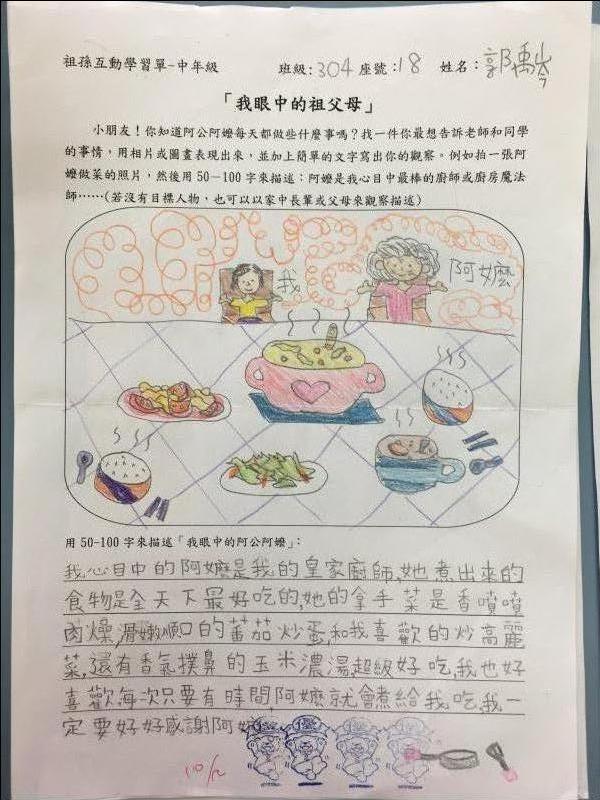 祖孫互動學習單-中年級 班級:304 座號:18 姓名:郭禹岑
「我眼中的祖父母」
小朋友!你知道阿公阿嬤每天都做些什麼事嗎?找一件你最想告訴老師和同學
的事情,用相片或圖畫表現出來,並加上簡單的文字寫出你的觀察。例如拍一張阿
嬤做菜的照片,然後用50—100字來描述:阿嬤是我心目中最棒的廚師或廚房魔法
師……(若沒有目標人物,也可以以家中長輩或父母來觀察描述)
我 阿嬤
用 50-100 字來描述「我眼中的阿公阿嬤」:
我心目中的阿嬤是我的皇家廚師,她煮出來的
食物是全天下最好吃的,她的拿手菜是香噴噴
肉燥,滑嫩順口的蕃茄炒蛋,和我喜歡的炒高麗
菜,還有香氣撲鼻的玉米濃湯,超級好吃,我也好
喜歡,每次只要有時間,阿嬤就會煮給我吃,我一
定要好好感謝阿